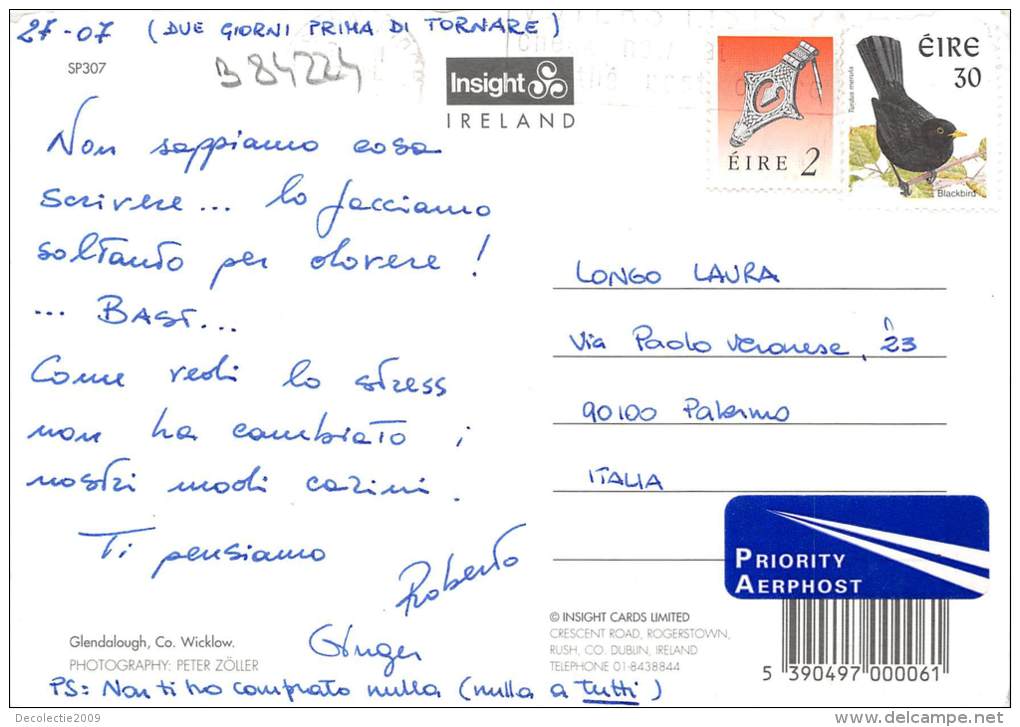 27-07 (DUE GIORNI PRIMA DI TORNARE)
SP307
B 84224
Insight
IRELAND
ÉIRE 2
ÉIRE
30
Turdus merula
Blackbird
Non sappiamo cosa
scrivere... lo facciamo
soltanto per dovere!
... BASI...
Come vedi lo stress
non ha cambiato i
nostri modi carini.
Ti pensiamo
Roberto
Ginger
Glendalough, Co. Wicklow.
PHOTOGRAPHY: PETER ZÖLLER
PS: Non ti ho comprato nulla (nulla a tutti)
LONGO LAURA
Via Paolo Veronese, 23
90100 Palermo
ITALIA
PRIORITY
AERPHOST
© INSIGHT CARDS LIMITED
CRESCENT ROAD, ROGERSTOWN,
RUSH, CO. DUBLIN, IRELAND
TELEPHONE 01-8438844
5 390497 000061
Decolectie2009
www.delcampe.net